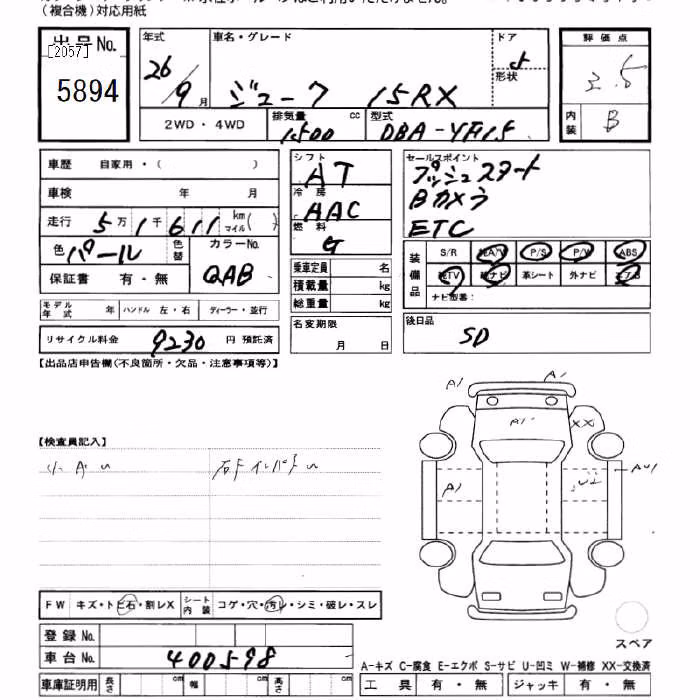 (複合機)対応用紙
出品No.
[2057]
5894
年式
26/9月
車名・グレード
ジューク 15RX
ドア
形状
5
評価点
3.5
内装
B
2WD・4WD
排気量 cc
1500
型式
DBA-YF15
車歴 自家用・( )
車検 年 月
走行 5万1千611 km マイル( )
色 パール 色替
カラーNo. QAB
保証書 有・無
シフト AT
冷房 AAC
燃料 G
乗車定員 名
積載量 kg
総重量 kg
セールスポイント
プッシュスタート
Bカメラ
ETC
装備品
S/R P/S P/W ABS
革シート 外ナビ
ナビ型番:
モデル年式 年 ハンドル 左・右 ディーラー・並行
リサイクル料金 9230 円 預託済
名変期限 月 日
後日品
SD
【出品店申告欄(不良箇所・欠品・注意事項等)】
【検査員記入】
A1 A1
A1 XX
A1 U2
FW キズ・トビ石・割レX シート内装 コゲ・穴・汚レ・シミ・破レ・スレ
登録No.
車台No. 400598
スペア
A-キズ C-腐食 E-エクボ S-サビ U-凹ミ W-補修 XX-交換済
車庫証明用 長さ cm 幅 cm 高さ cm
工具 有・無 ジャッキ 有・無